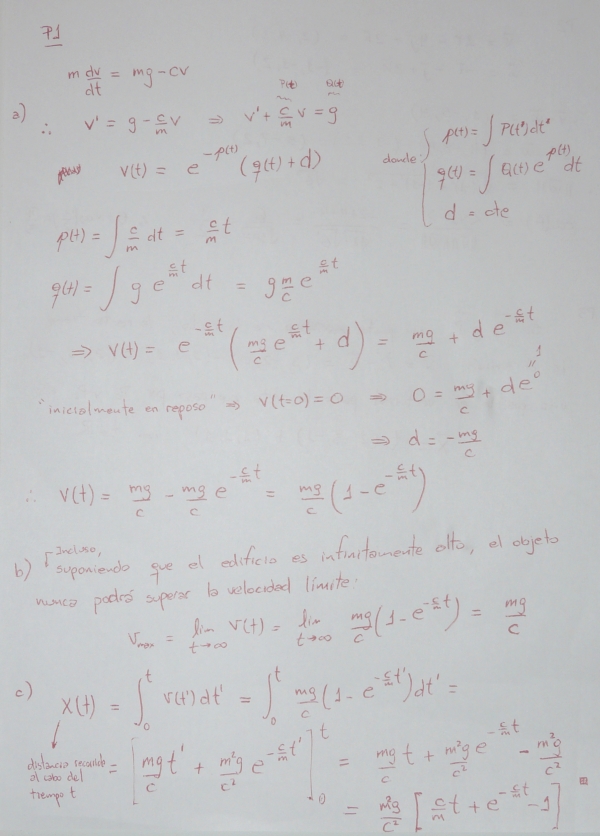 P1
m dv/dt = mg - cv
a) ∴ v' = g - c/m v ⇒ v' + c/m v = g
P(t) Q(t)
v(t) = e^{-p(t)} (q(t) + d)
donde { p(t) = ∫ P(t')dt'
q(t) = ∫ Q(t) e^{p(t)} dt
d = cte
p(t) = ∫ c/m dt = c/m t
q(t) = ∫ g e^{c/m t} dt = g m/c e^{c/m t}
⇒ v(t) = e^{-c/m t} ( mg/c e^{c/m t} + d ) = mg/c + d e^{-c/m t}
"inicialmente en reposo" ⇒ v(t=0) = 0 ⇒ 0 = mg/c + d e^0
" 1
⇒ d = - mg/c
∴ v(t) = mg/c - mg/c e^{-c/m t} = mg/c (1 - e^{-c/m t})
b) Incluso,
suponiendo que el edificio es infinitamente alto, el objeto
nunca podrá superar la velocidad límite.
v_max = lim_{t→∞} v(t) = lim_{t→∞} mg/c (1 - e^{-c/m t}) = mg/c
c) X(t) = ∫_0^t v(t')dt' = ∫_0^t mg/c (1 - e^{-c/m t'})dt' =
distancia recorrida
al cabo del
tiempo t
= [ mg/c t' + m²g/c² e^{-c/m t'} ]_0^t = mg/c t + m²g/c² e^{-c/m t} - m²g/c²
= m²g/c² [ c/m t + e^{-c/m t} - 1 ]